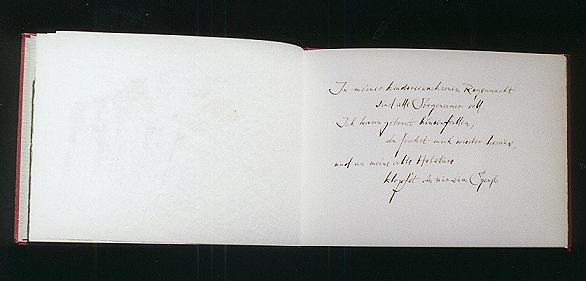 In meiner kindererwachsenen Regennacht
sind alle Sorgeneimer voll
Ich kann getrost hineinfallen,
du fischst mich wieder heraus,
und an meine alte Holztüre
klopfst du nur zum Spaß